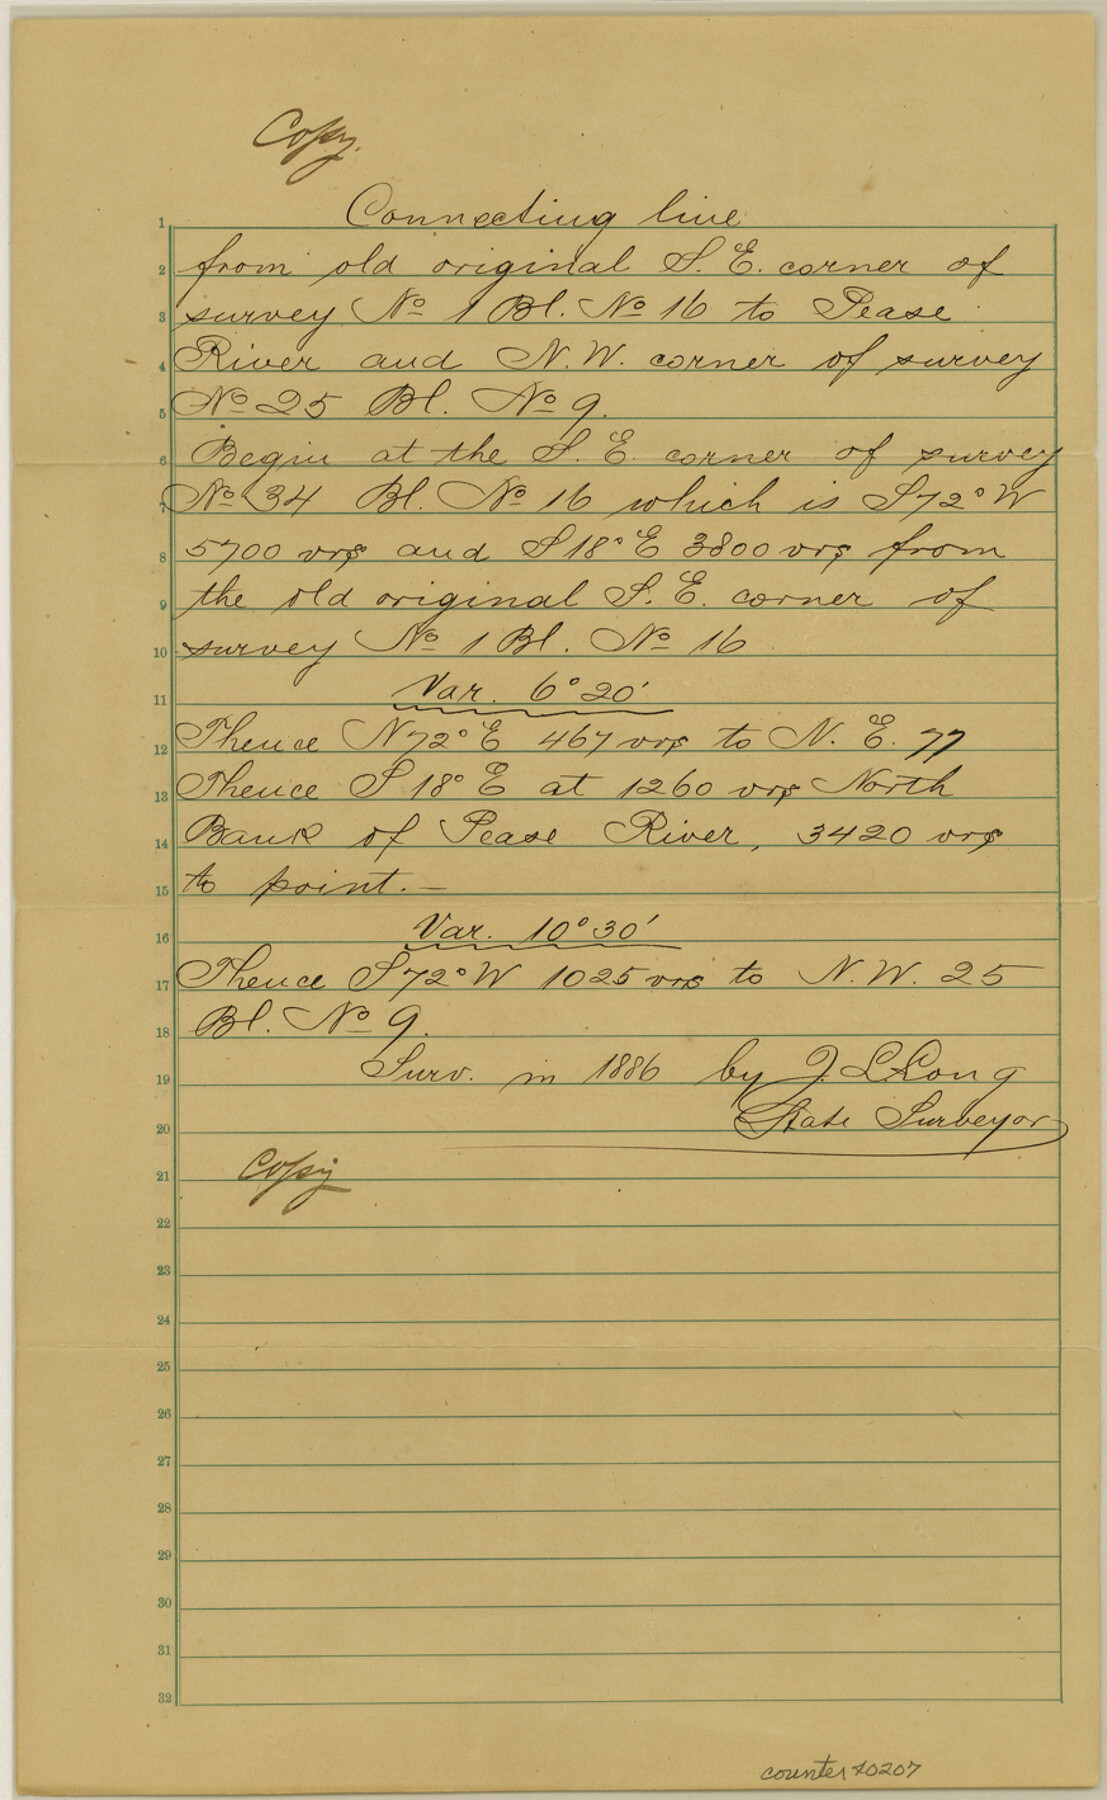 Copy.
1 Connecting line
2 from old original S. E. corner of
3 survey No 1 Bl. No 16 to Pease
4 River and N. W. corner of survey
5 No 25 Bl. No 9.
6 Begin at the S. E. corner of survey
7 No 34 Bl. No 16 which is S 72° W
8 5700 vrs and S 18° E 3800 vrs from
9 the old original S. E. corner of
10 survey No 1 Bl. No 16
11 Var. 6° 20'
12 Thence N 72° E 467 vrs to N. E. 77
13 Thence S 18° E at 1260 vrs North
14 Bank of Pease River, 3420 vrs
15 to point. —
16 Var. 10° 30'
17 Thence S 72° W 1025 vrs to N. W. 25
18 Bl. No 9.
19 Surv. in 1886 by J. L Long
20 State Surveyor
21 Copy
22
23
24
25
26
27
28
29
30
31
32
counter 40207